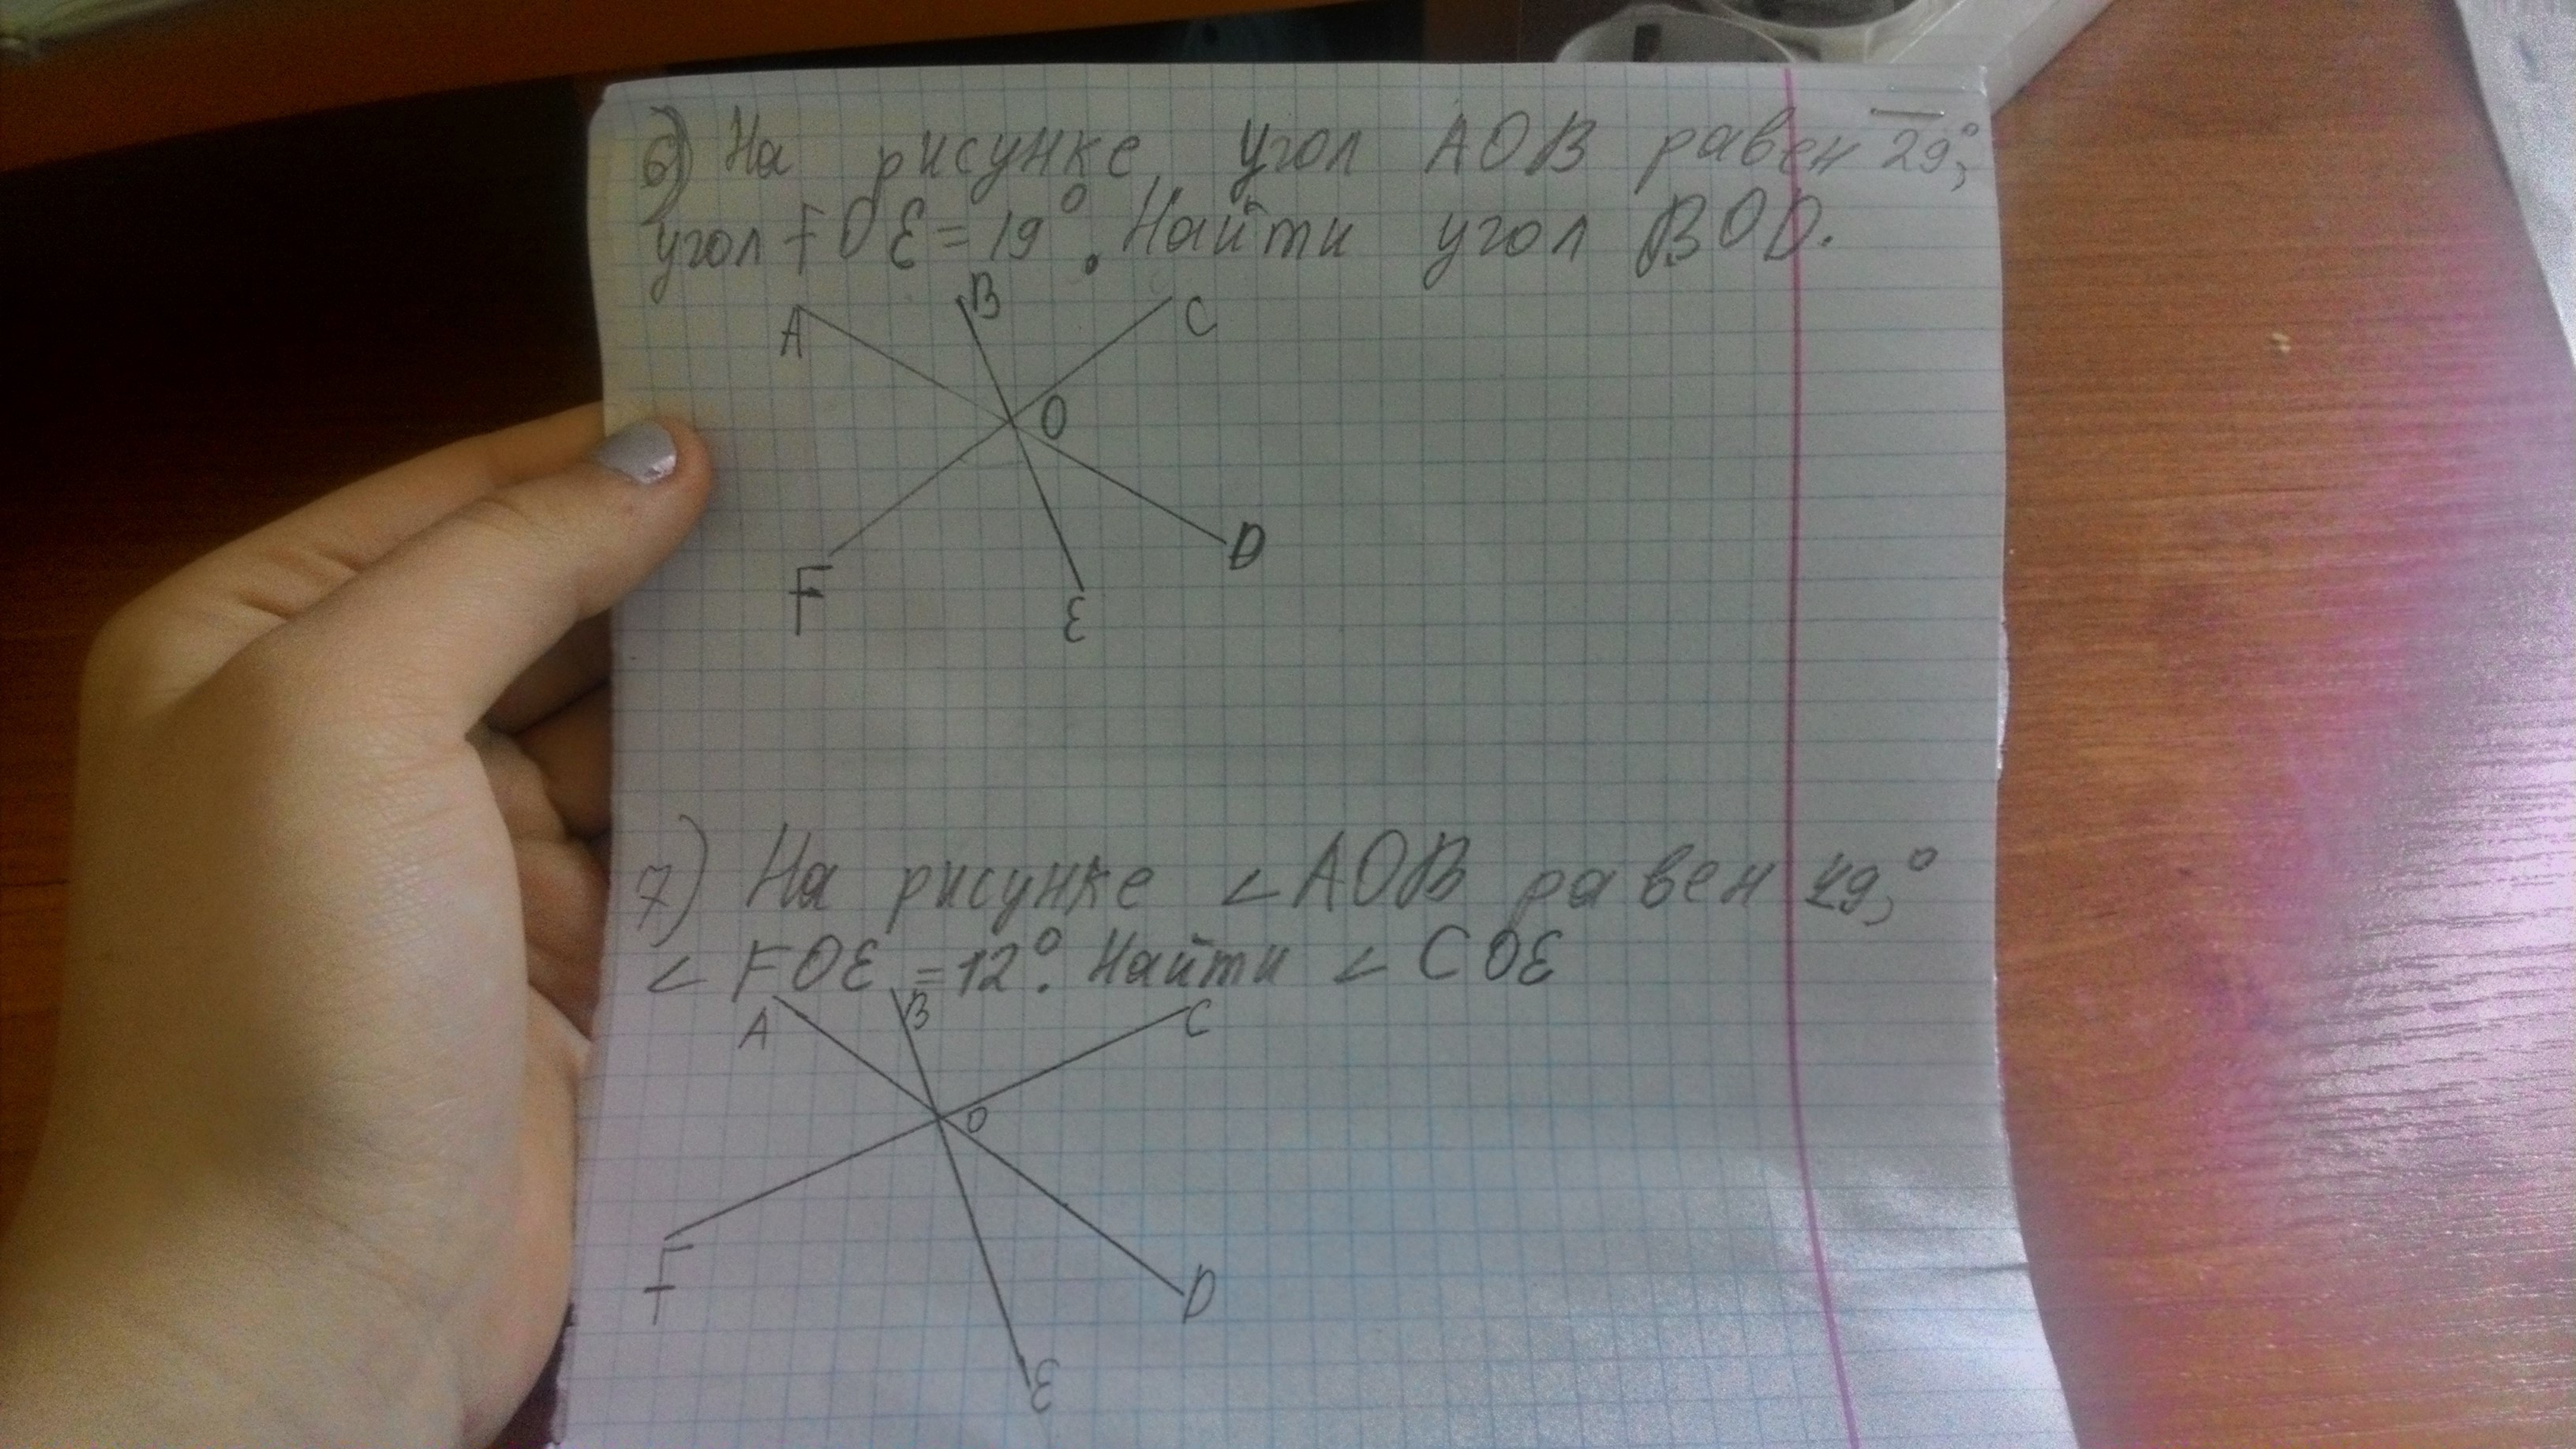 6) На рисунке угол AOB равен 29°,
угол FOE = 19°. Найти угол BOD.
A B C
O
D
F
E
7) На рисунке ∠AOB равен 49°,
∠FOE = 12°. Найти ∠COE
A B C
O
F
D
E